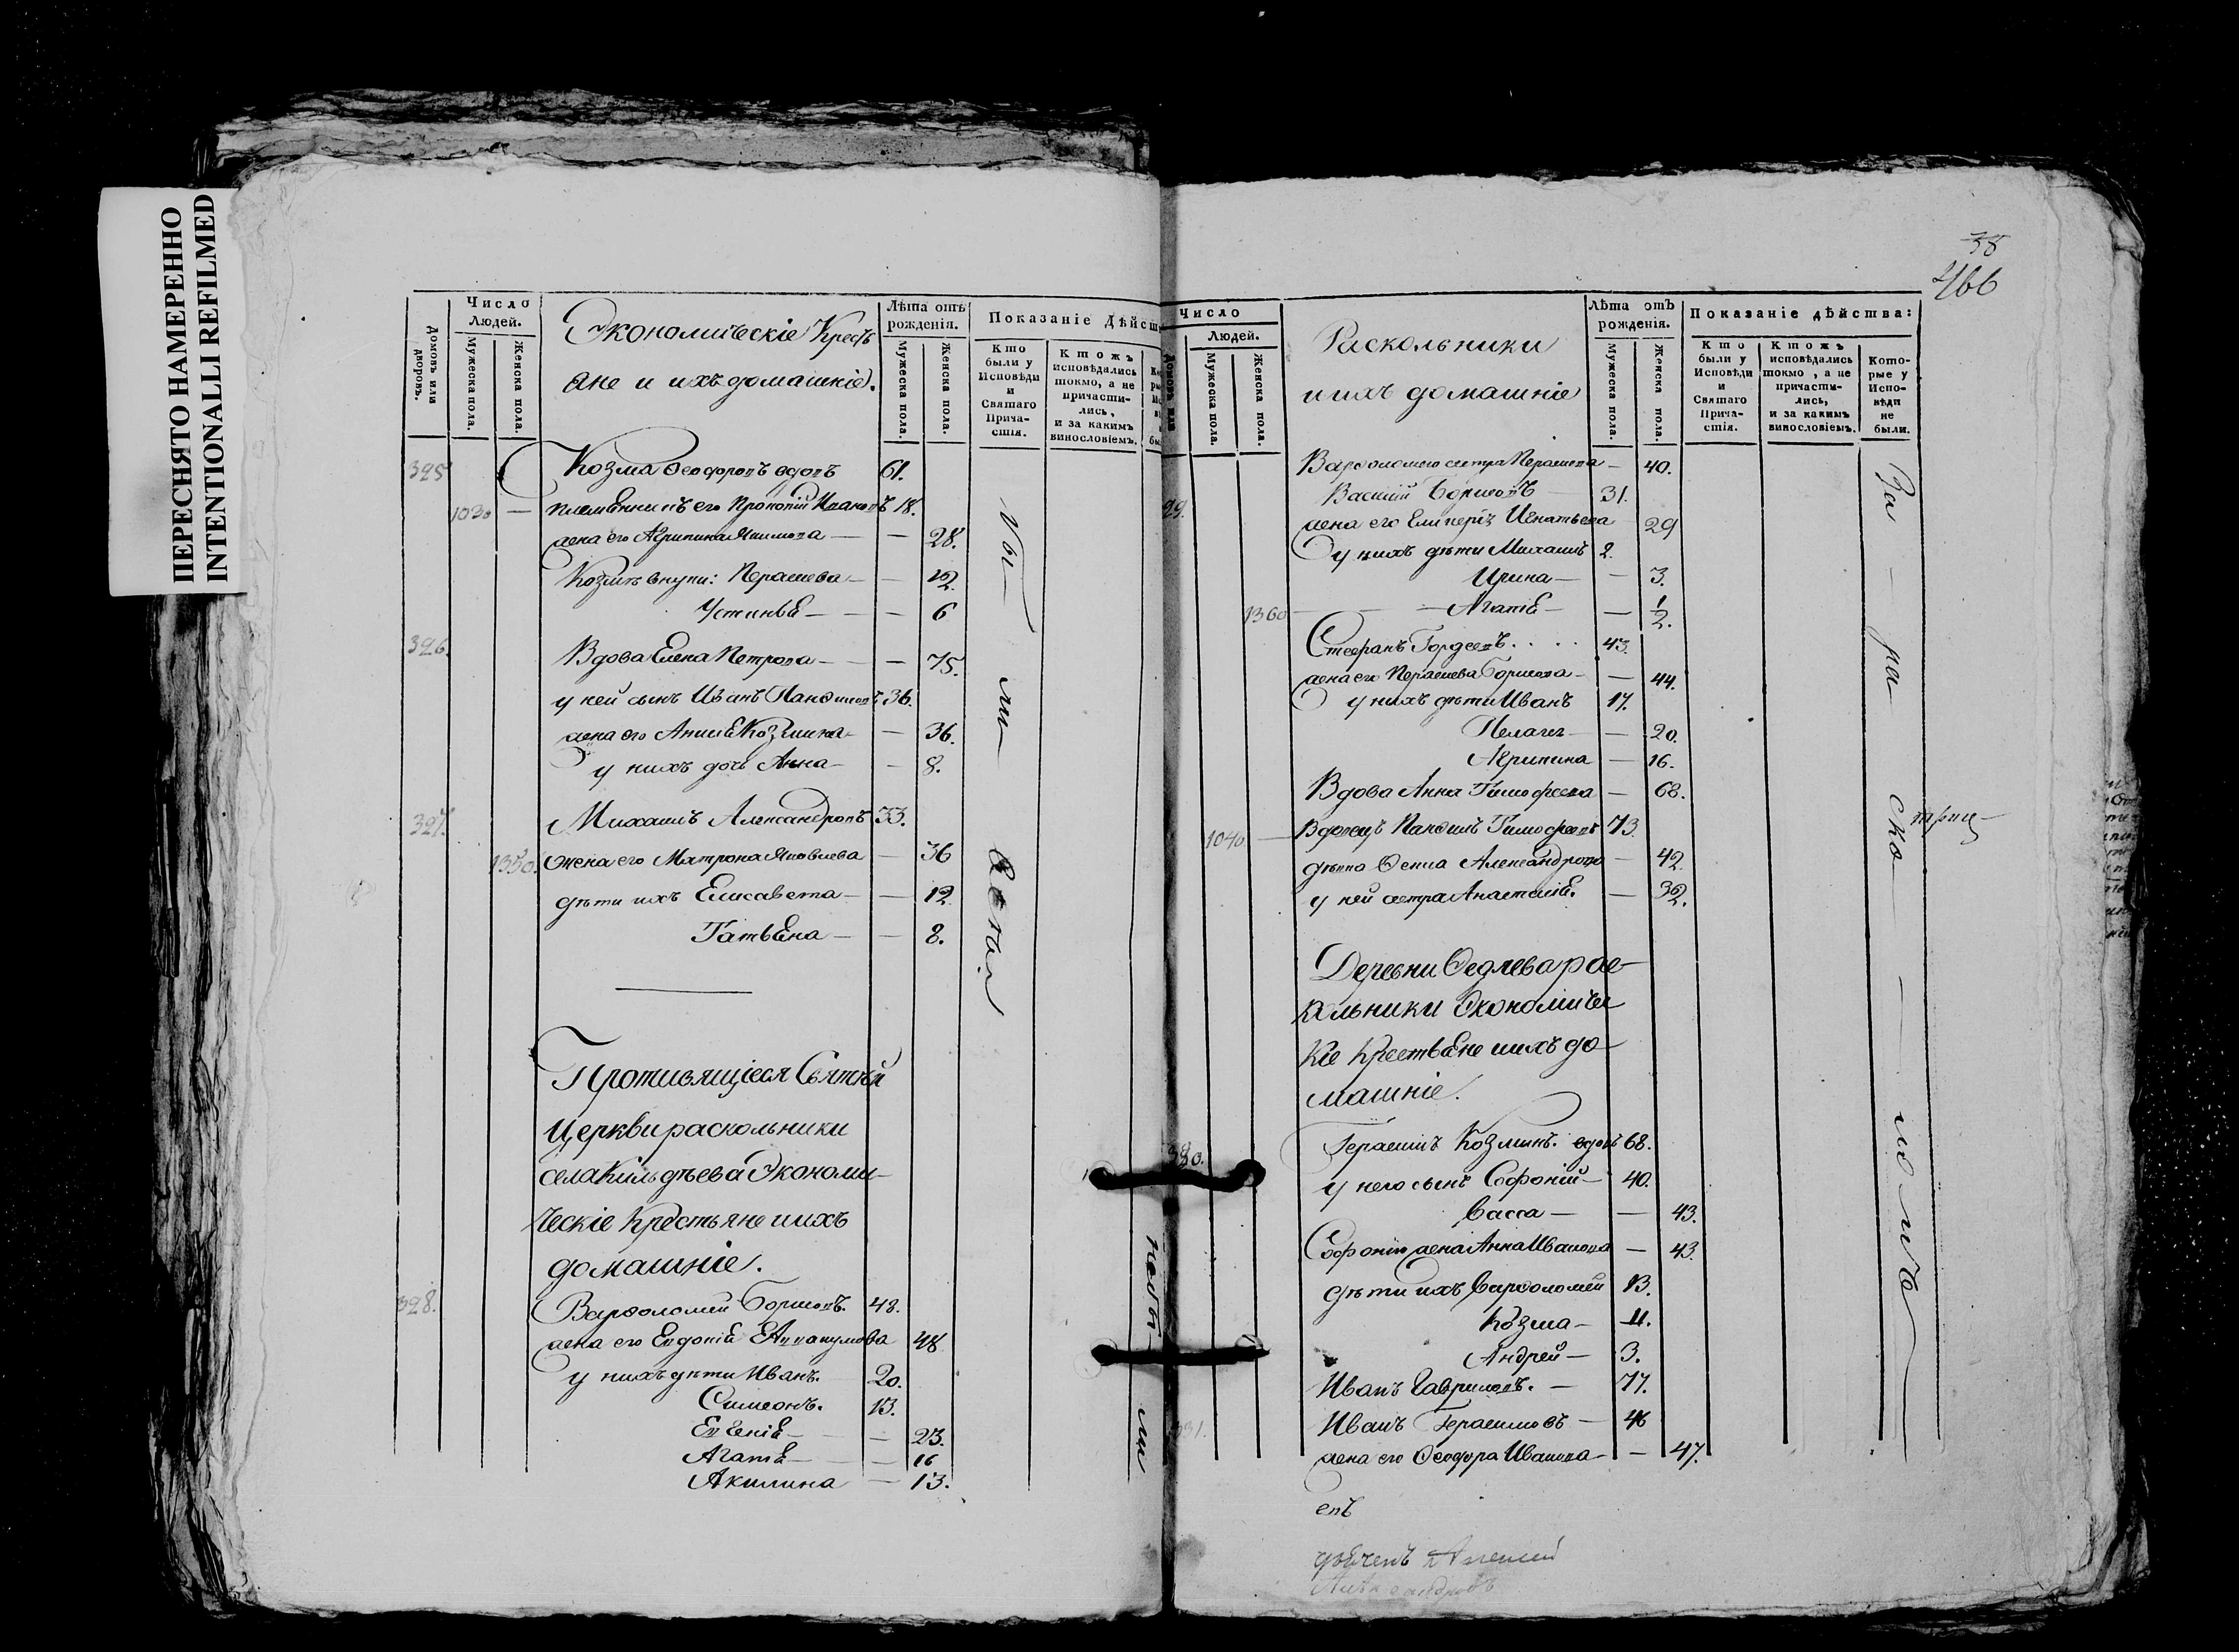 ПЕРЕСНЯТО НАМЕРЕННО
INTENTIONALLI REFILMED
Домовъ или дворовъ.
Число Людей.
Мужеска пола.
Женска пола.
Экономическіе Кресть
яне и ихъ домашніе.
Лѣта отъ рожденія.
Мужеска пола.
Женска пола.
Показаніе Дѣйст
Кто были у Исповѣди и Святаго Прича-стія.
Ктожъ исповѣдались токмо, а не причасти-лись, и за какимъ винословіемъ.
395 Козма Ѳеодоровъ вдовъ 61.
1030 — племянникъ его Прокопій Ивановъ 18.
жена его Агрипина — — 28.
Козмѣ внуки: Параскева — — 12
Устинья — — 6
396. Вдова Елена Петрова — — 75.
у ней сынъ Иванъ 36.
жена его Козмина — — 36.
у нихъ дочь Анна — — 8.
397. Михаилъ Александровъ 33.
1350. Жена его Матрона Яковлева — 36
дѣти ихъ Елисавета — — 12.
Татьяна — — 8.
Противящіеся Святѣй
Церкви раскольники
села Кильдѣева Экономи-
ческіе Крестьяне и ихъ
домашніе.
398. Варѳоломей Борисовъ. 48.
жена его Евдокія Аввакумова 48
у нихъ дѣти Иванъ. 20.
Симеонъ. 13.
Евгенія — — 23.
Агаѳія — — 16
Акилина — 13.
38
466
Число
Людей.
Мужеска пола.
Женска пола.
Раскольники
и ихъ домашніе
Лѣта отъ рожденія.
Мужеска пола.
Женска пола.
Показаніе дѣйства:
Кто были у Исповѣди и Святаго Прича-стія.
Ктожъ исповѣдались токмо, а не причасти-лись, и за какимъ винословіемъ.
Кото-рые у Испо-вѣди не были.
Варѳоломею сестра Параскева — 40.
Василій Борисовъ — 31.
жена его Игнатьева 29
у нихъ дѣти Михаилъ 8.
Ирина — — 3.
1360 — Агаѳія — — 1/2.
Стефанъ Гордеевъ. . . . 43.
жена его Параскева Борисова — — 44.
у нихъ дѣти Иванъ 17.
Пелагея — — 20.
Агрипина — 16.
Вдова Анна Тимофеева — 68.
1040. — Вдовецъ Тимофеевъ 73.
Ксенія Александрова — 42
у ней сестра Анастасія. — 32.
Деревни раз-
кольники Экономичес
кіе Крестьяне и ихъ до
машніе.
380. Герасимъ Козминъ. вдовъ 68.
у него сынъ Софоній — 40.
Васса — — 43.
Софонію жена Анна Иванова — 43.
дѣти ихъ Варѳоломей 13.
Козма — 11.
Андрей — 3.
Иванъ Гавриловъ. — 77.
Иванъ Герасимовъ — 46
жена его Ѳеодора Иванова — — 47.
За — ра — ско — ло — мъ
евъ